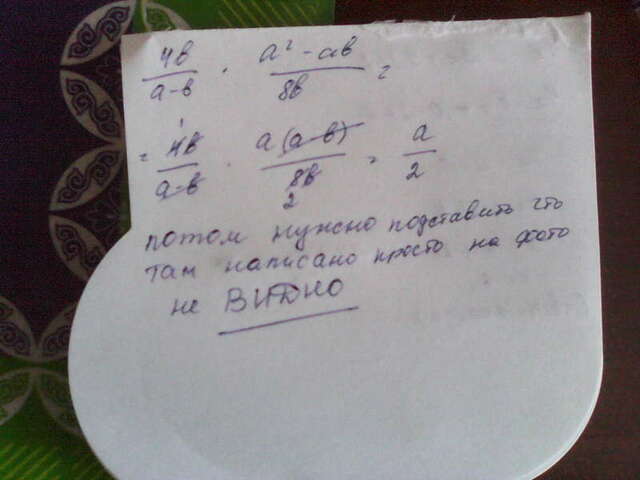 4в/а-в · а²-ав/8в =
= 4в/а-в 1 · а(а-в)/8в 2 = а/2
потом нужно подставить что
там написано просто на фото
не ВИДНО